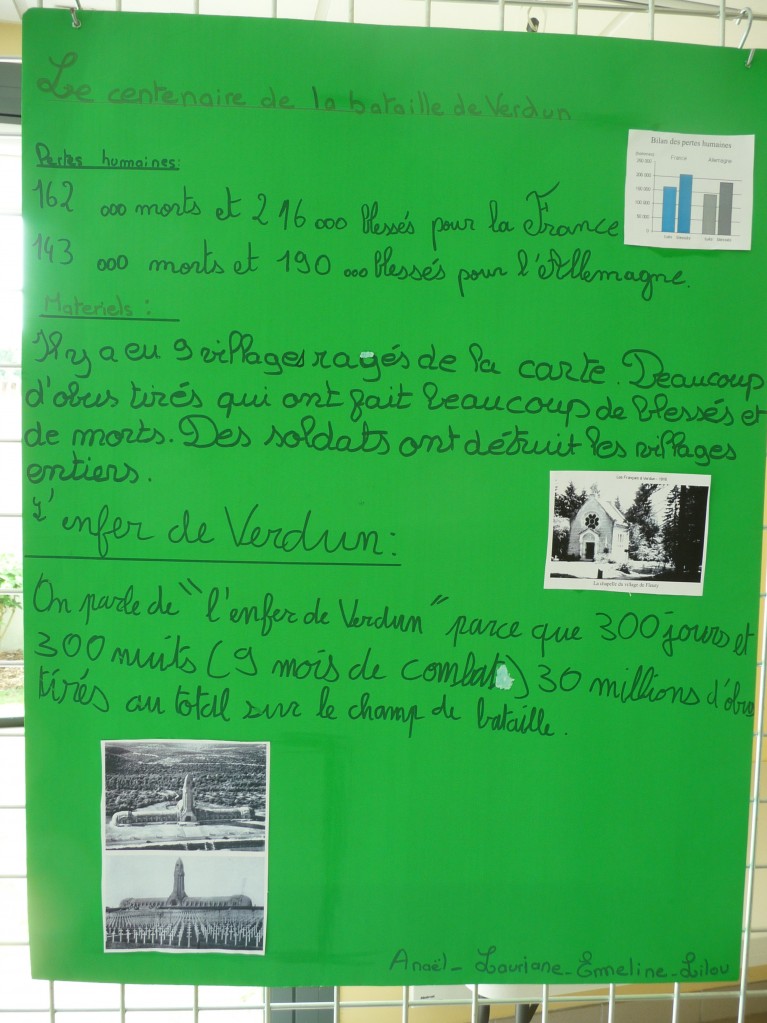 Le centenaire de la bataille de Verdun
Pertes humaines:
162 000 morts et 216 000 blessés pour la France
143 000 morts et 190 000 blessés pour l'Allemagne.
Bilan des pertes humaines
France Allemagne
250 000
200 000
150 000
100 000
50 000
0
tués blessés tués blessés
Materiels :
Il y a eu 9 villages rayés de la carte. Beaucoup
d'obus tirés qui ont fait beaucoup de blessés et
de morts. Des soldats ont détruit les villages
entiers.
Les Français à Verdun - 1916
La chapelle du village de Fleury
L'enfer de Verdun:
On parle de "l'enfer de Verdun" parce que 300 jours et
300 nuits (9 mois de combat) 30 millions d'obus
tirés au total sur le champ de bataille.
Anaël - Lauriane - Emeline - Lilou